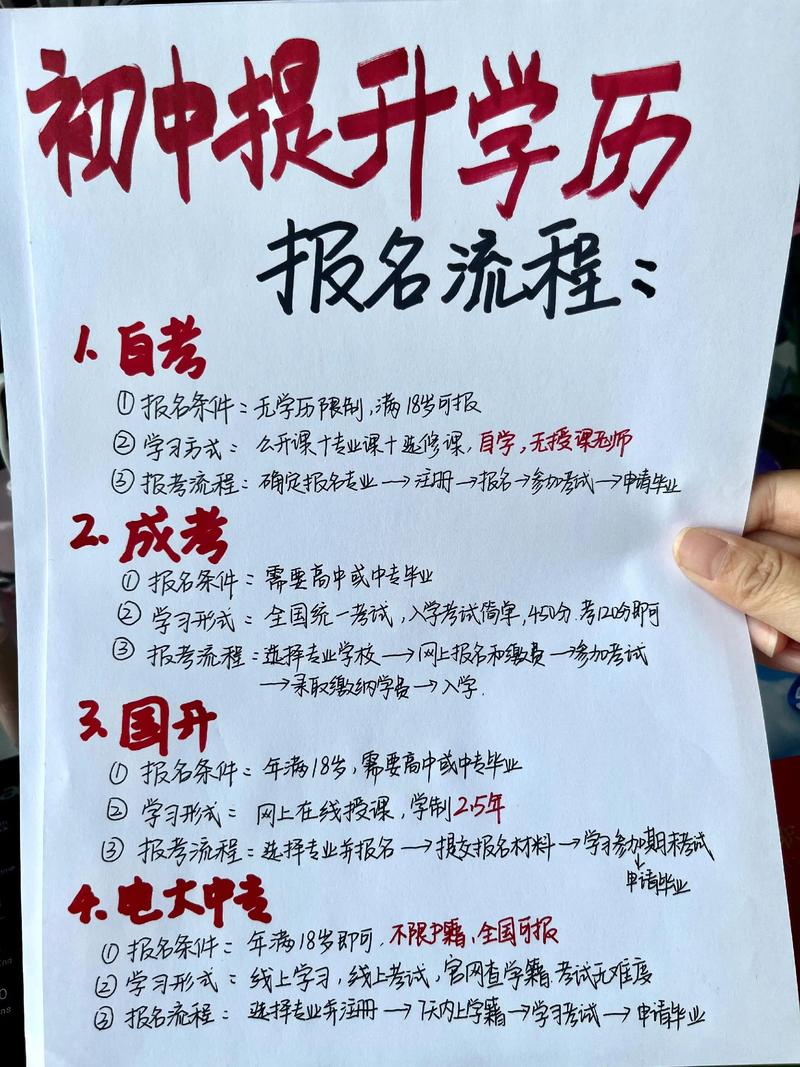 初中提升学历
报名流程:
1.自考
①报名条件:无学历限制,满18岁可报
②学习方式:公开课+专业课+选修课,自学,无授课老师
③报考流程:确定报名专业→注册→报名→参加考试→申请毕业
2.成考
①报名条件:需要高中或中专毕业
②学习形式:全国统一考试,入学考试简单,450分.考120分即可
③报考流程:选择专业学校→网上报名和缴费→参加考试
→录取缴纳学费→入学.
3.国开
①报名条件:年满18岁,需要高中或中专毕业
②学习形式:网上在线授课,学制2.5年
③报考流程:选择专业并报名→提交报名材料→学习参加期末考试
↓
申请毕业
4.电大中专
①报名条件:年满18岁即可,不限户籍,全国可报
②学习形式:线上学习,线上考试,官网查学籍.考试无难度
③报名流程:选择专业并注册→7天内上学籍→学习考试→申请毕业